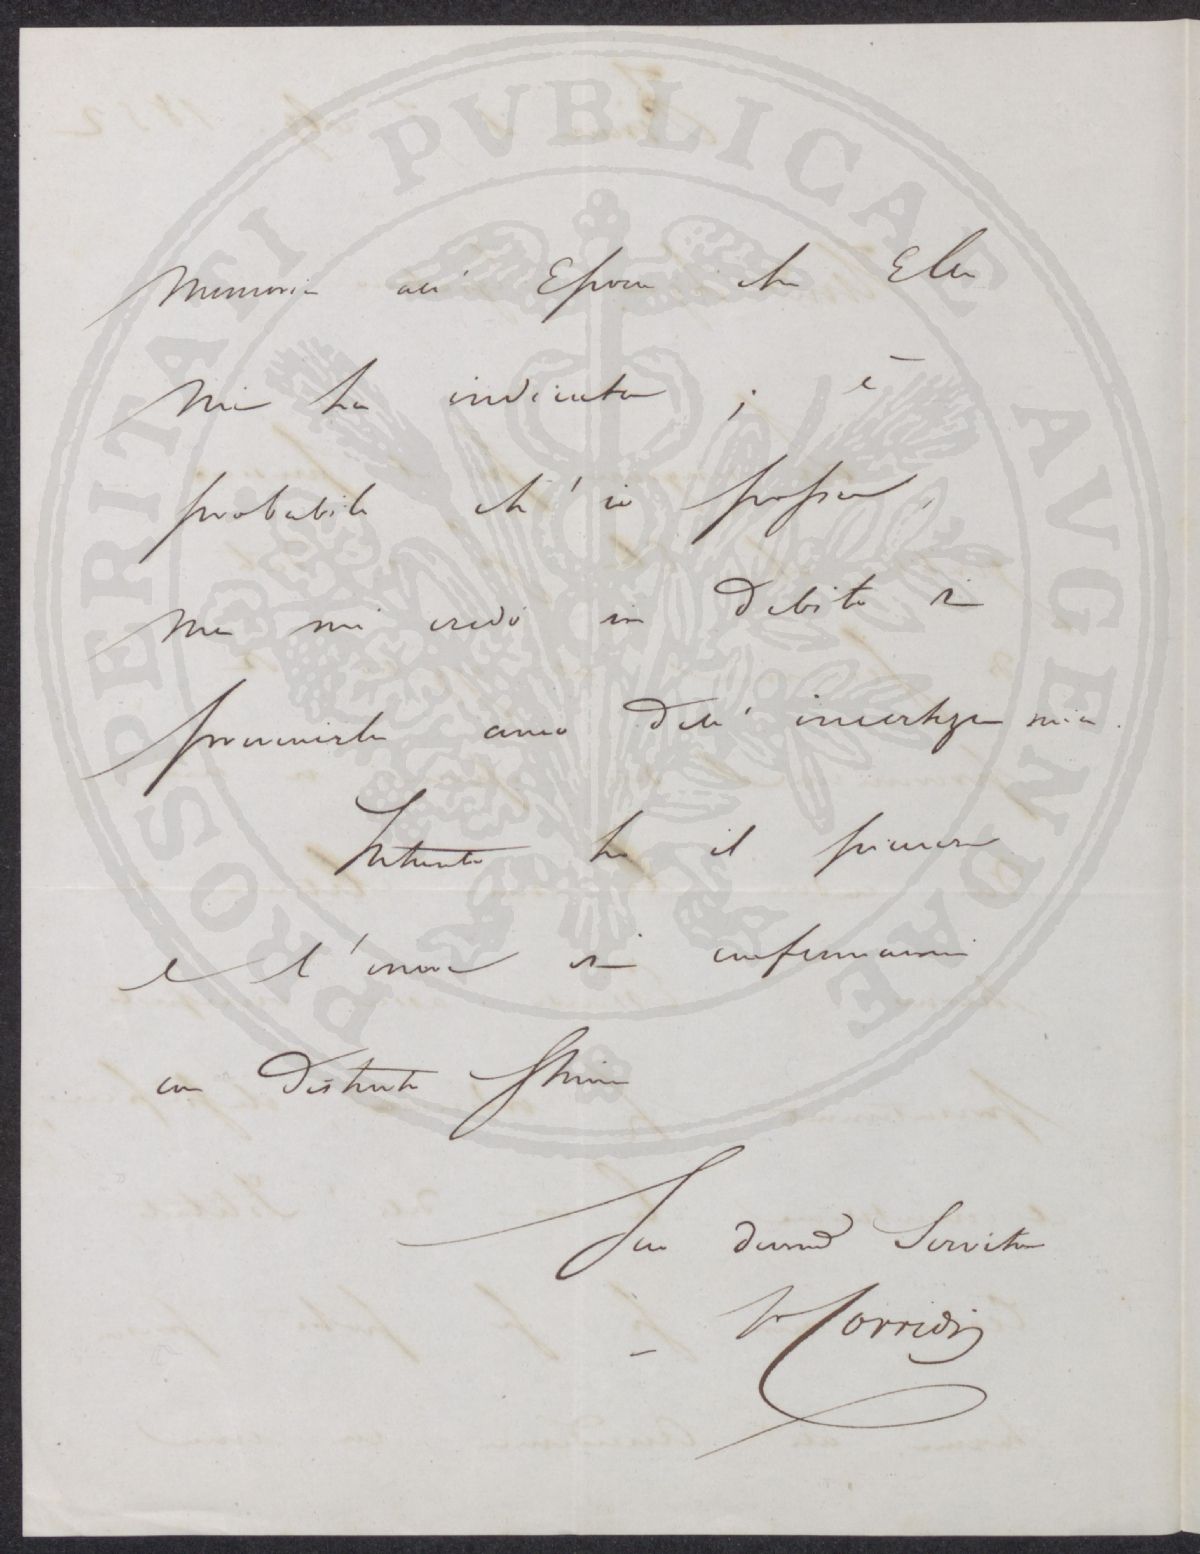 PROSPERITATI PVBLICAE AVGENDAE
Memoria all' Epoca che Ella
mi ha indicata ; è
probabile ch' io possa,
ma mi credo in debito di
prevenirla anco dell' incertezza mia.
Intanto ho il piacere
e l' onore di confermarmi
con distinta Stima
Suo devmo Servitore
F Corridi